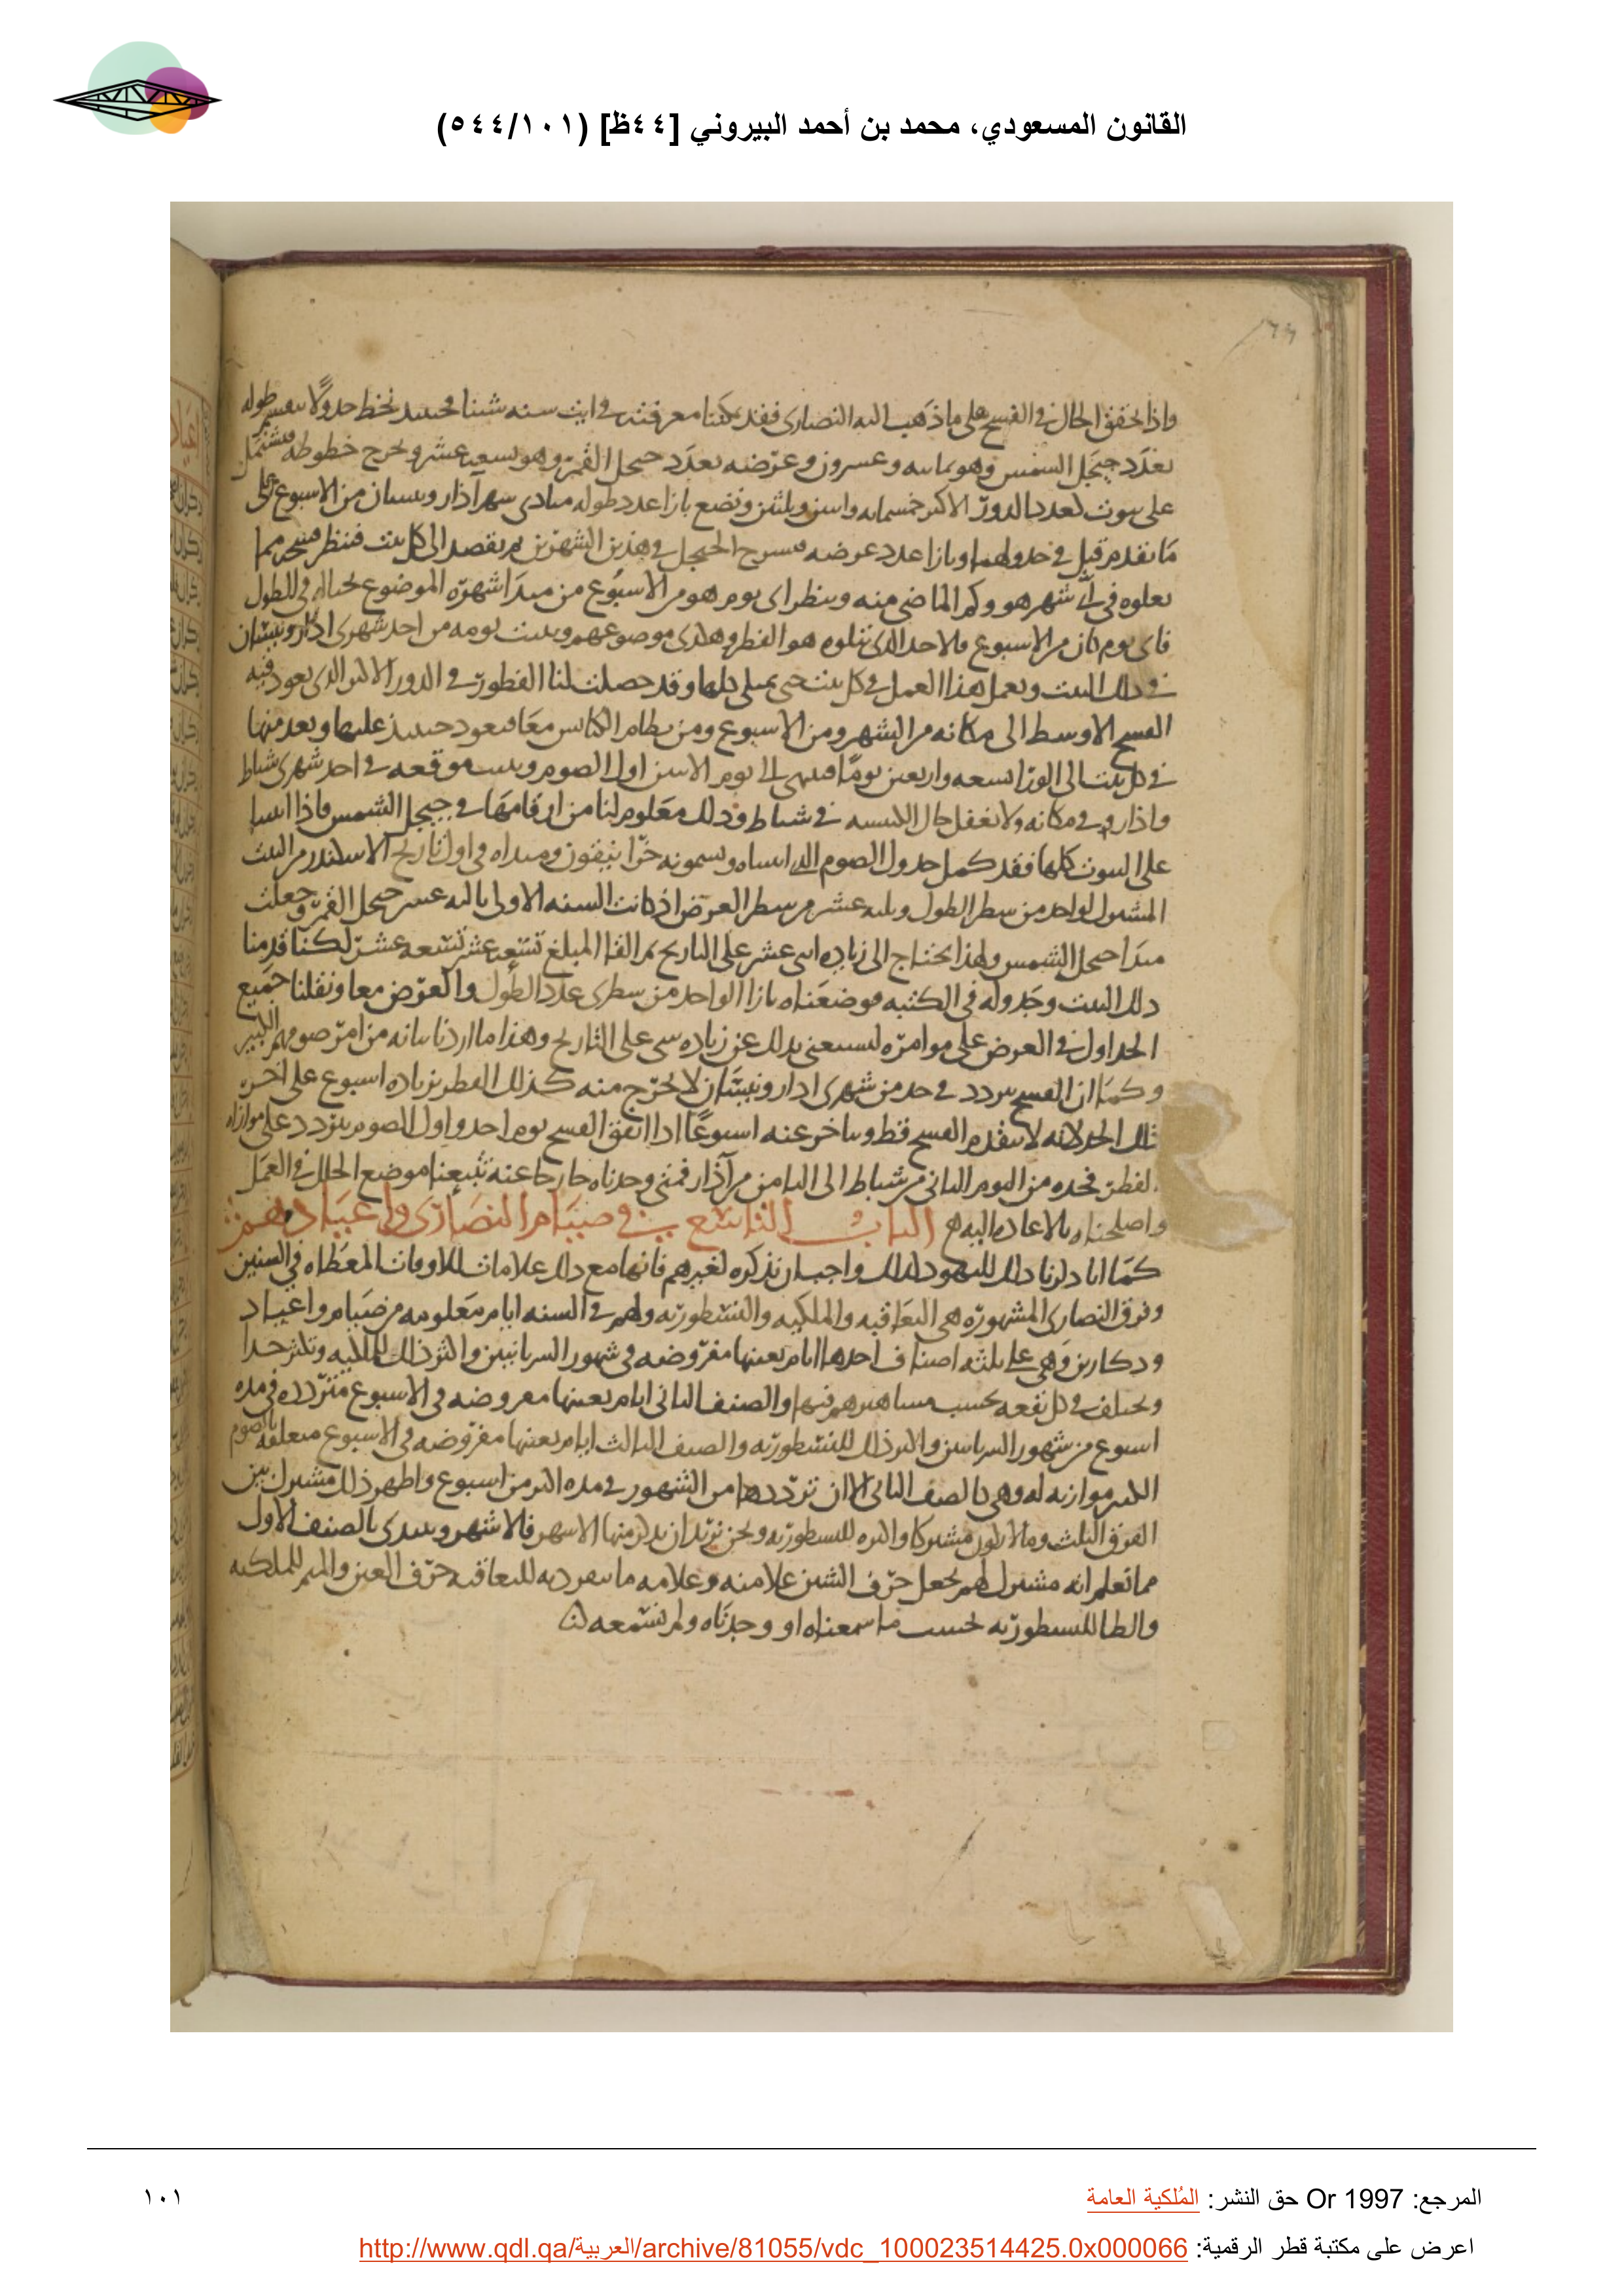 القانون المسعودي، محمد بن أحمد البيروني [٤٤ظ] (٥٤٤/١٠١)
واذا تحقق الحال في الفسح على ما ذهب اليه النصارى فقد يمكننا معرفته في ايت سنه شينا وحينئذ نخط جدولا نقسم طوله
بعدد جيجل الشمس وهو ثمانيه وعسرون وعرضه بعدد جيجل القمر وهو تسعه عشر ونخرج خطوطه فيشتمل
على بيوت لعدد الدور الاكبر خمسمايه واسن وثلثين ونضع بازا عدد طوله مبادى شهر آذار ونيسان من الاسبوع على
ما تقدم قبل في جدولهما وبازا عدد عرضه فسح الجيجل في هذين الشهرين ثم نقصد الى كل بيت فننظر فسحه مما
يعلوه في اى شهر هو وكم الماضى منه وننظر اى يوم هو من الاسبوع من مبدا شهره الموضوع بحياله في الطول
فاى يوم كان من الاسبوع فالاحد الذى يتلوه هو الفطر وهكذى موضوعهم ويثبت يومه من احد شهرى اذار ونيسان
في ذلك البيت ونعمل هذا العمل في كل بيت حتى يمتلى كلها وقد حصلت لنا الفطور في الدور الاكبر الذى يعود فيه
الفسح الاوسط الى مكانه من الشهر ومن الاسبوع ومن نظام الكبايس معا فنعود حينئذ عليها ونعد منها
في كل بيت الى الورا تسعه واربعين يوما فينتهى الى يوم الاسن اول الصوم ونثبت موقعه في احد شهرى شباط
واذار في مكانه ولا نغفل حال الكبيسه في شباط وذلك معلوم لنا من ارقامها في جيجل الشمس فاذا اتينا
على البيوت كلها فقد كمل جدول الصوم الذى اثبتناه ويسمونه خرانيقون ومبداه في اول تاريخ الاسكندر من البيت
المشترك لواحد من سطر الطول وثلثه عشر من سطر العرض اذ كانت السنه الاولى ثالثه عشر جيجل القمر وجعلت
مبدا جيجل الشمس ولهذا يحتاج الى زياده اثنى عشر على التاريخ ثم القا المبلغ تسعه عشر تسعه عشر لكنا قدمنا
ذلك البيت وجدوله في الكتبه فوضعناه بازا الواحد من سطرى عدد الطول والعرض معا ونقلنا جميع
الجداول في العرض على موامره ليستغنى بذلك عن زياده شى على التاريخ وهذا ما اردنا بيانه من امر صومهم الكبير
وكما ان الفسح يتردد في حد من شهرى اذار ونيسان لا يخرج منه كذلك الفطر بزياده اسبوع على اخر
ذلك الحد لانه لا يتقدم الفسح قط ويتاخر عنه اسبوعا اذا اتفق الفسح يوم احد واول الصوم يتردد على موازاه
الفطر فحده من اليوم الثانى من شباط الى الثامن من آذار فمتى وجدناه خارجا عنه تتبعنا موضع الخلل في العمل
واصلحناه بالاعاده اليه الباب التاسع في صيام النصارى واعيادهم
كما انا ذكرنا ذلك لليهود كذلك واجب ان نذكره لغيرهم فانها مع ذلك علامات للاوقات المعطاه في السنين
وفرق النصارى المشهوره هى اليعاقبه والملكيه والنسطوريه ولهم في السنه ايام معلومه من صيام واعياد
وذكارين وهى على ثلثه اصناف احدها ايام بعينها مفروضه في شهور السريانيين واكثر ذلك للملكيه وتكثر جدا
ويختلف في كل بقعه بحسب مشاهيرهم فيها والصنف الثانى ايام بعينها مفروضه في الاسبوع متردده في مده
اسبوع من شهور السريانيين واكثر ذلك للنسطوريه والصنف الثالث ايام بعينها مفروضه في الاسبوع متعلقه بالصوم
الكبير موازيه له وهى كالصنف الثانى الا ان ترددها من الشهور في مده اكثر من اسبوع واظهر ذلك مشترك بين
الفرق الثلث وما لا يكون مشتركا واكثره للنسطوريه ونحن نريد ان نذكر منها الاشهر فالاشهر ونبتدى بالصنف الاول
مما نعلم انه مشترك لهم نجعل حرف الشين علامته وعلامه ما ينفرد به لليعاقبه حرف العين والميم للملكيه
والطا للنسطوريه بحسب ما سمعناه او وجدناه ولم نسمعه
المرجع: Or 1997 حق النشر: المُلكية العامة
١٠١
اعرض على مكتبة قطر الرقمية: http://www.qdl.qa/العربية/archive/81055/vdc_100023514425.0x000066